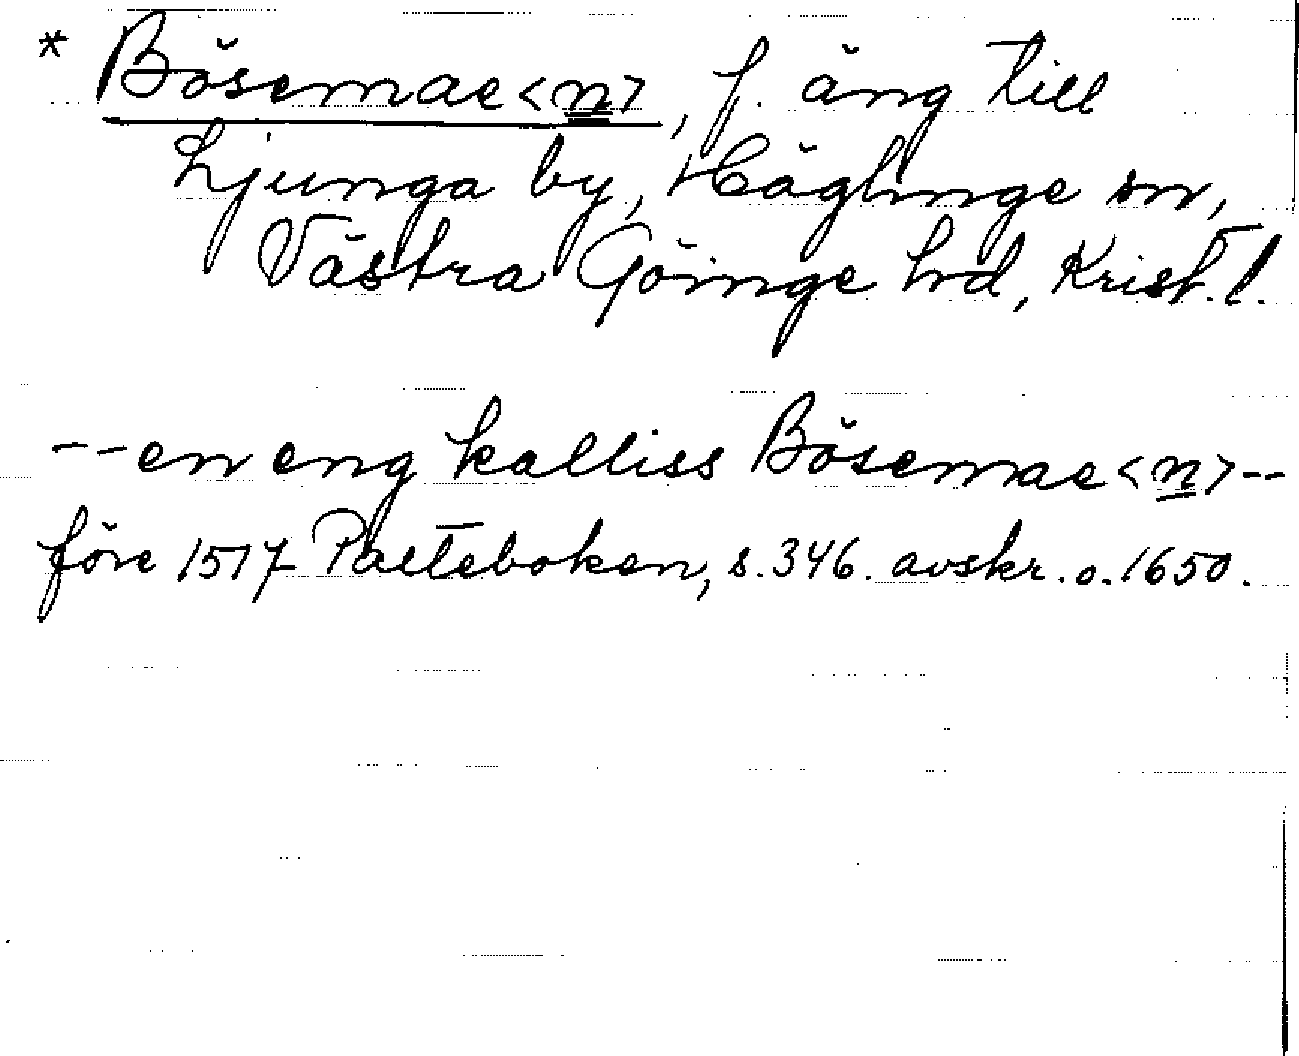 * Bösemae<n>, f. äng till
Ljunga by, Häglinge sn,
Västra Göinge hd, Krist. l.
--en eng kalliss Bösemae<n>--
före 1517 Palteboken, s. 346. avskr. o. 1650.